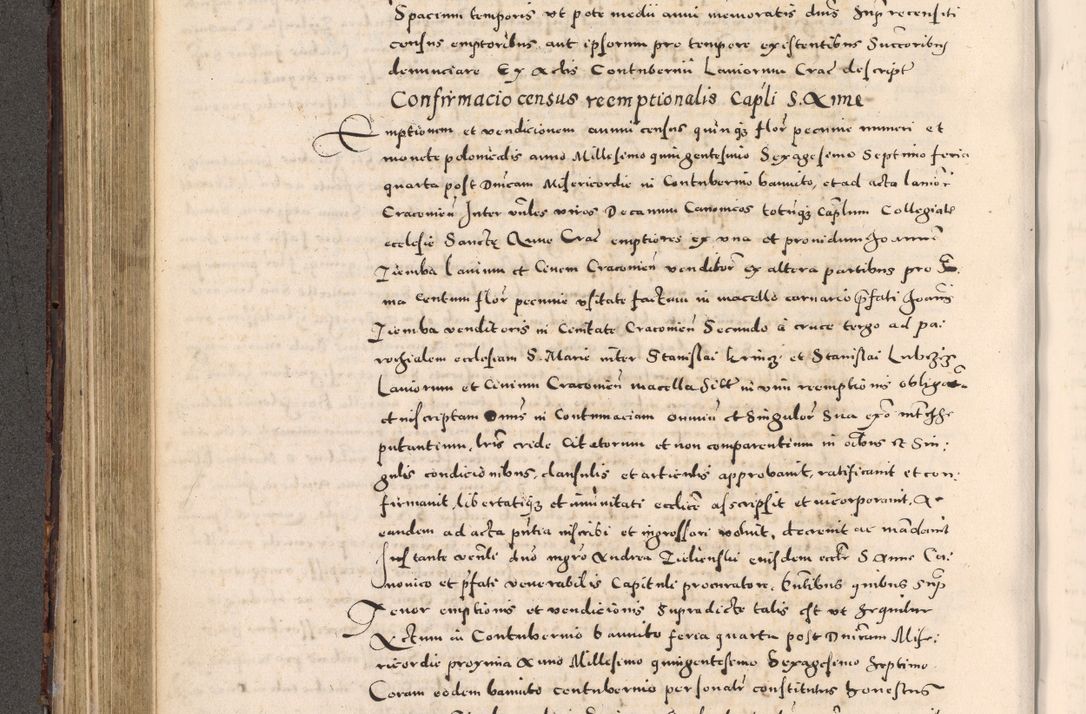 Spacium temporis ut pote medii anni memoratis dnis Sup recensiti
census emptoribus aut ipsorum pro tempore existentibus Successoribus
denunciare Ex Actis Contubernii Laniorum Crac descript
Confirmacio census reemptionalis Capli S. Anne
Emptionem et vendicionem annui census quinq flor pecunie numeri et
monete polonicalis anno Millesimo quingentesimo Sexagesimo Septimo feria
quarta post Dnicam Misericordie in Contubernio bannito, et ad acta lanior
Cracovien Inter vnles viros Decanum Canonicos totuq Caplum Collegiate
ecclesie Sancte Anne Crac emptores ex una et providum Joannem
Ziemba Lanium et Civem Cracovien venditore ex altera partibus pro
ma Centum flor pecunie usitate factum in macello carnario pfati Joannis
Ziemba venditoris in Civitate Cracovien Secundo a cruce tergo ad pa-
rochialem ecclesiam S. Marie inter Stanislai et Stanislai
Laniorum et Civium Cracovien macella Sitt in vim reemptionis obligat
et inscriptam Omnis in Contumaciam omniu et Singulor Sua exo intesse
putantium, lris cride Citatorum et non comparentium in oibus et Sin-
gulis condicionibus, clausulis et articulis approbavit, ratificavit et con-
firmavit, libertatiq et immunitati ecclice asscripsit et incorporavit, Ac
eandem ad acta pntia inscribi et ingrossari voluit, decrevit ac mandavit
Instante venle dno mgro Andrea eiusdem eccle S Anne Ca-
nonico et pfati venerabilis Capituli procuratore, tenoribus quibus Sup
Tenor emptionis et vendicionis Supradicte talis est ut Sequitur
Actum in Contubernio bannito feria quarta post Dnicam Mise-
ricordie proxima Anno Millesimo quingentesimo Sexagesimo Septimo
Coram eodem bannito contubernio personalr constitutus honestus